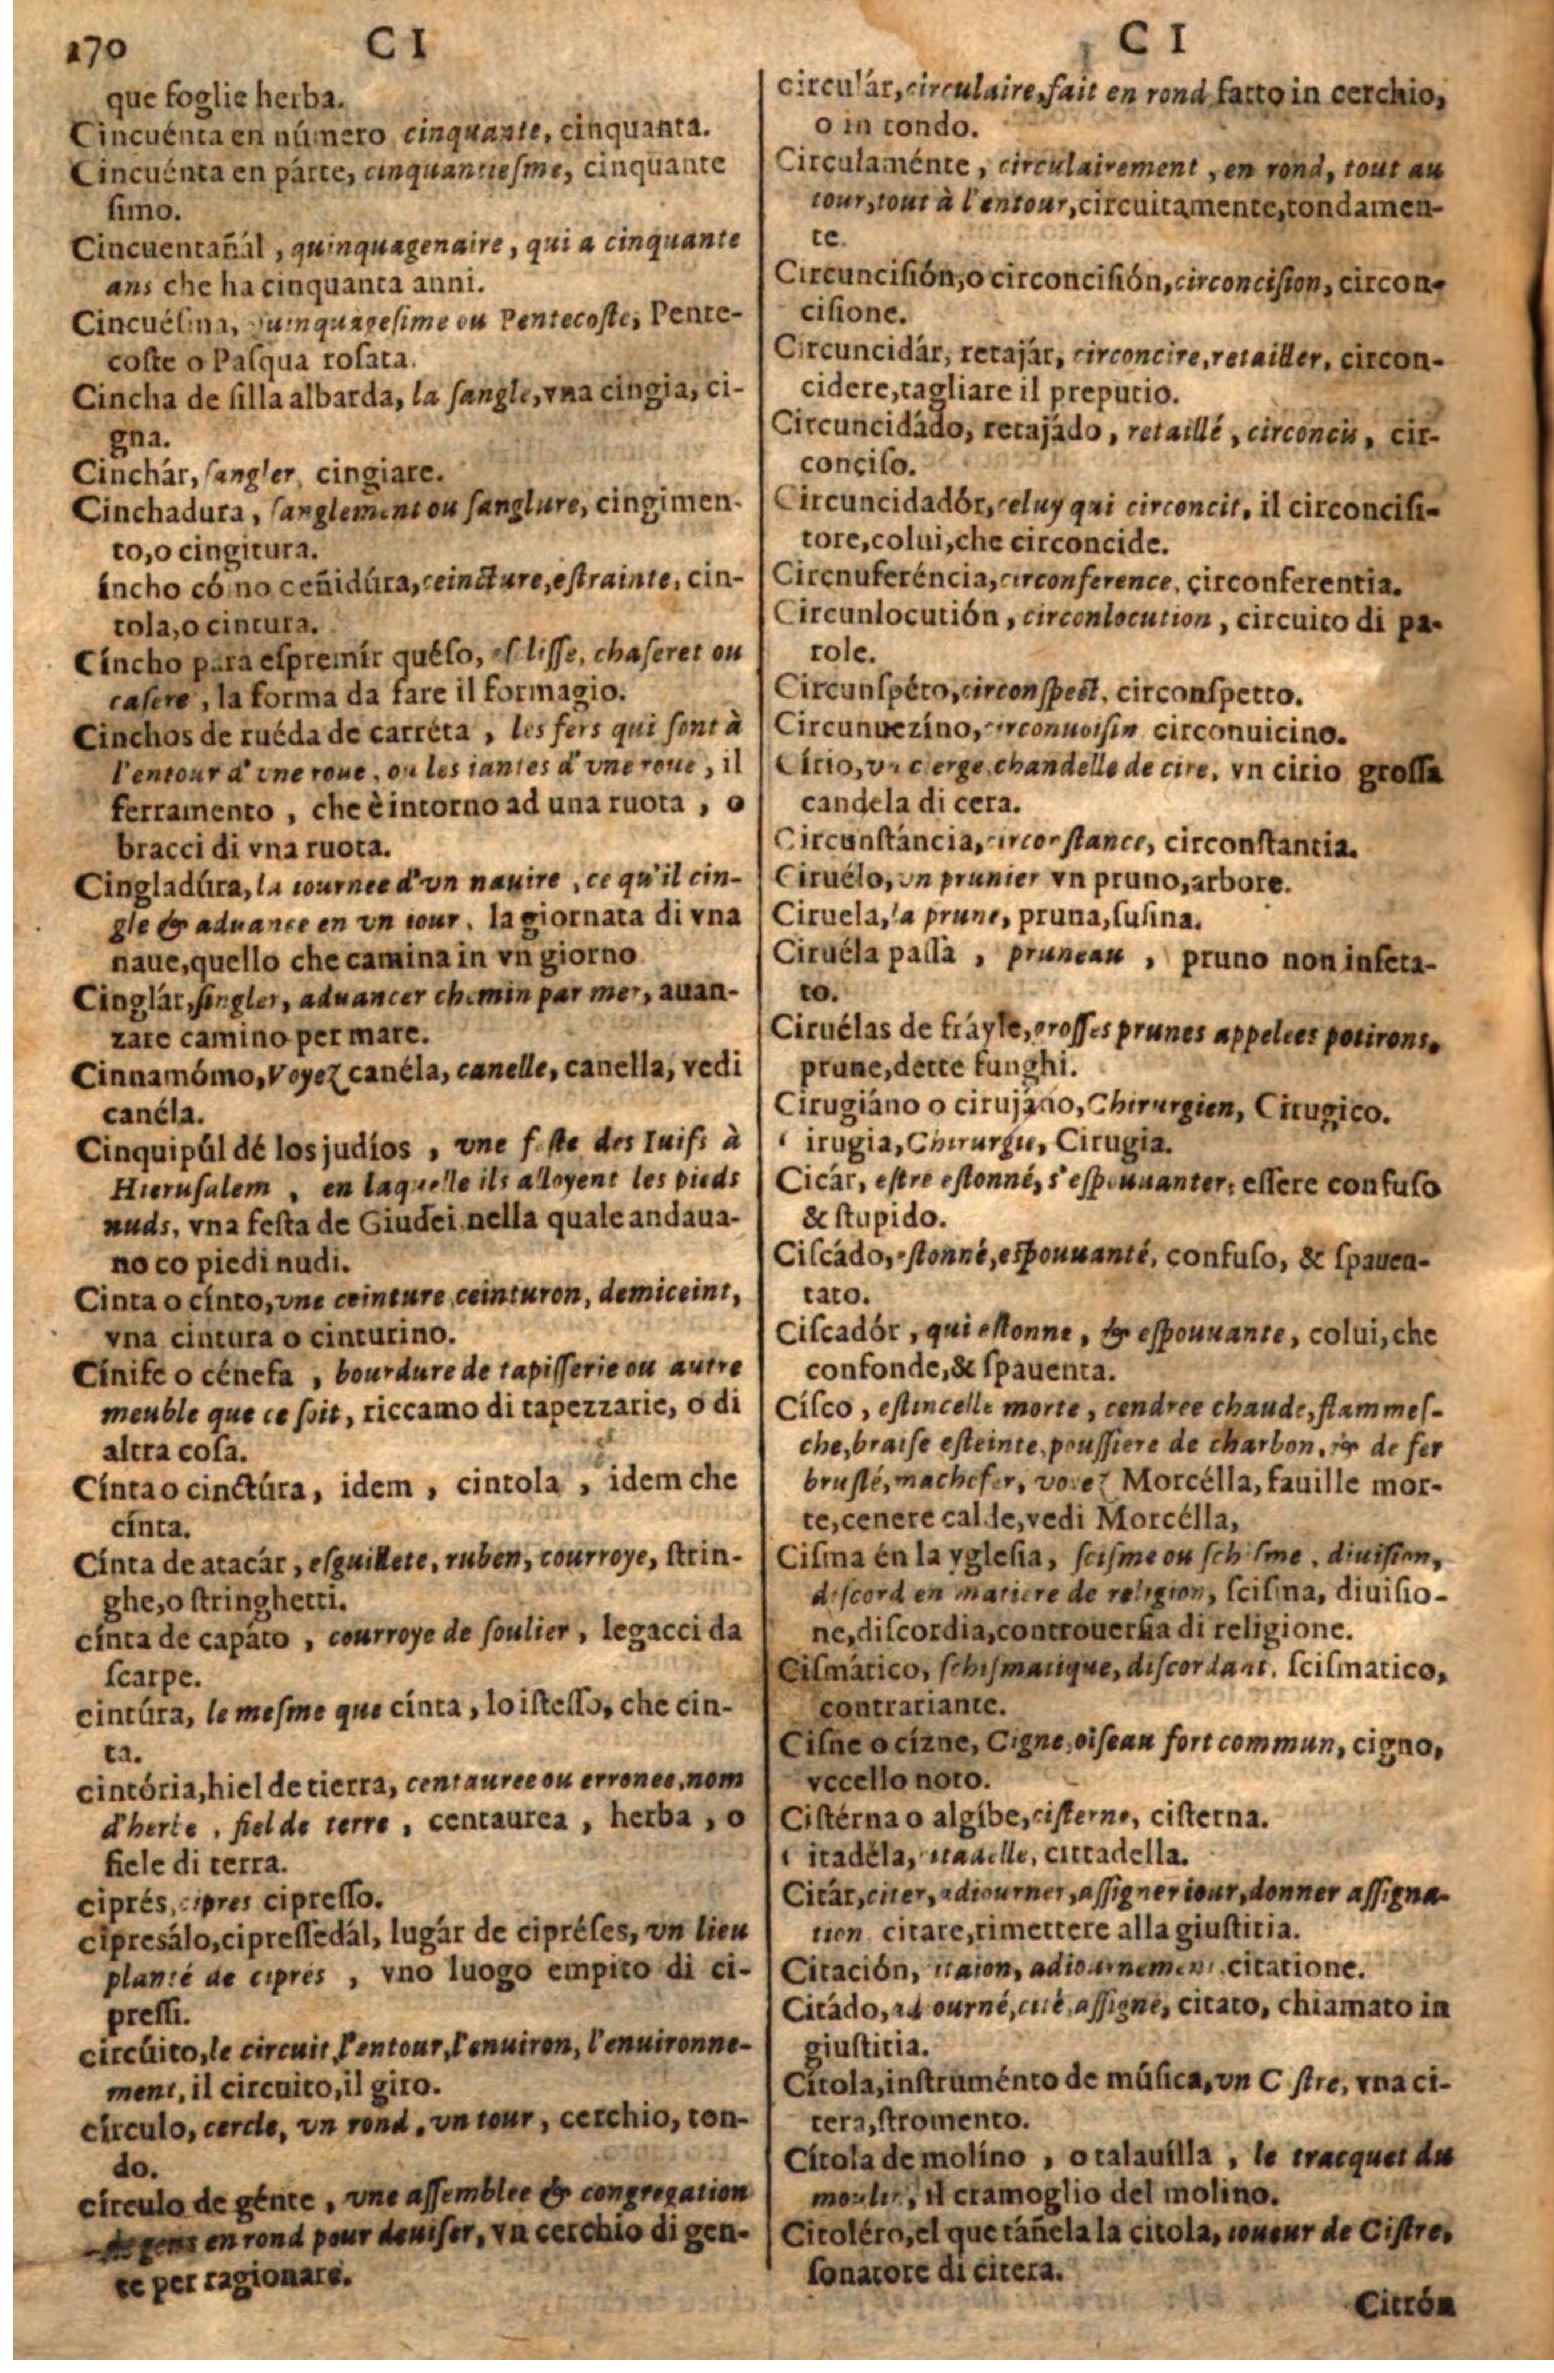 170 C I
que foglie herba.
Cincuénta en número cinquante, cinquanta.
Cincuénta en párte, cinquantiesme, cinquante
ſimo.
Cincuentañál, quinquagenaire, qui a cinquante
ans che ha cinquanta anni.
Cincuéſma, quinquageſime ou Pentecoſte, Pente-
coſte o Paſqua roſata.
Cincha de ſilla albarda, la ſangle, vna cingia, ci-
gna.
Cinchár, ſangler, cingiare.
Cinchadura, ſanglement ou ſanglure, cingimen-
to, o cingitura.
íncho cómo ceñidúra, ceincture, eſtrainte, cin-
tola, o cintura.
Cíncho para eſpremír quéſo, eſliſſe, chaſeret ou
caſere, la forma da fare il formagio.
Cinchos de ruéda de carréta, les fers qui ſont à
l'entour d'vne roue, ou les iantes d'vne roue, il
ferramento, che è intorno ad una ruota, o
bracci di vna ruota.
Cingladúra, la iournee d'vn nauire, ce qu'il cin-
gle & aduance en vn iour, la giornata di vna
naue, quello che camina in vn giorno
Cinglár, ſingler, aduancer chemin par mer, auan-
zare camino per mare.
Cinnamómo, Voyez canéla, canelle, canella, vedi
canéla.
Cinquipúl dé los judíos, vne feſte des Iuifs à
Hieruſalem, en laquelle ils alloyent les pieds
nuds, vna feſta de Giudei nella quale andaua-
no co piedi nudi.
Cinta o cínto, vne ceinture, ceinturon, demiceint,
vna cintura o cinturino.
Cínife o cénefa, bourdure de tapiſſerie ou autre
meuble que ce ſoit, riccamo di tapezzarie, o di
altra coſa.
Cínta o cinctúra, idem, cintola, idem che
cínta.
Cínta de atacár, eſguillete, ruben, courroye, ſtrin-
ghe, o ſtringhetti.
cínta de capáto, courroye de ſoulier, legacci da
ſcarpe.
cintúra, le meſme que cínta, lo iſteſſo, che cin-
ta.
cintória, hiel de tierra, centauree ou erronee, nom
d'herbe, fiel de terre, centaurea, herba, o
fiele di terra.
ciprés, cipres cipreſſo.
cipresálo, cipreſſedál, lugár de cipréſes, vn lieu
planté de cipres, vno luogo empito di ci-
preſſi.
circúito, le circuit, l'entour, l'enuiron, l'enuironne-
ment, il circuito, il giro.
círculo, cercle, vn rond, vn tour, cerchio, ton-
do.
círculo de génte, vne aſſemblee & congregation
de gens en rond pour deuiſer, vn cerchio di gen-
te per ragionare.
C I
circulár, circulaire, fait en rond fatto in cerchio,
o in tondo.
Circulaménte, circulairement, en rond, tout au
tour, tout à l'entour, circuitamente, tondamen-
te.
Circunciſión, o circonciſión, circonciſion, circon-
ciſione.
Circuncidár, retajár, circoncire, retailler, circon-
cidere, tagliare il preputio.
Circuncidádo, retajádo, retaillé, circoncis, cir-
conciſo.
Circuncidadór, celuy qui circoncit, il circonciſi-
tore, colui, che circoncide.
Circnuferéncia, circonference, circonferentia.
Circunlocutión, circonlocution, circuito di pa-
role.
Circunſpéto, circonſpect, circonſpetto.
Circunuezíno, circonuoiſin circonuicino.
Círio, vn cierge, chandelle de cire, vn cirio groſſa
candela di cera.
Circunſtáncia, circonſtance, circonſtantia.
Ciruélo, vn prunier vn pruno, arbore.
Ciruela, la prune, pruna, ſuſina.
Ciruéla paſſa, pruneau, pruno non inſeta-
to.
Ciruélas de fráyle, groſſes prunes appelees potirons,
prune, dette funghi.
Cirugiáno o cirujáno, Chirurgien, Cirugico.
irugia, Chirurgie, Cirugia.
Cicár, eſtre eſtonné, s'eſpouuanter, eſſere confuſo
& ſtupido.
Ciſcádo, eſtonné, eſpouuanté, confuſo, & ſpauen-
tato.
Ciſcadór, qui eſtonne, & eſpouuante, colui, che
confonde, & ſpauenta.
Ciſco, eſtincelle morte, cendree chaude, flammeſ-
che, braiſe eſteinte, pouſſiere de charbon, & de fer
bruſlé, machefer, voyez Morcélla, fauille mor-
te, cenere calde, vedi Morcélla,
Ciſma én la ygleſia, ſciſme ou ſchiſme, diuiſion,
diſcord en matiere de religion, ſciſma, diuiſio-
ne, diſcordia, controuerſia di religione.
Ciſmático, ſchiſmatique, diſcordant, ſciſmatico,
contrariante.
Ciſne o cízne, Cigne, oiſeau fort commun, cigno,
vccello noto.
Ciſtérna o algíbe, ciſterne, ciſterna.
itadéla, citadelle, cittadella.
Citár, citer, adiourner, aſſigner iour, donner aſſigna-
tion citare, rimettere alla giuſtitia.
Citación, itaion, adiournement citatione.
Citádo, adiourné, cité, aſſigné, citato, chiamato in
giuſtitia.
Cítola, inſtruménto de múſica, vn Ciſtre, vna ci-
tera, ſtromento.
Cítola de molíno, o talauílla, le tracquet du
moulin, il cramoglio del molino.
Citoléro, el que táñela la citola, ioueur de Ciſtre,
ſonatore di citera.
Citrón